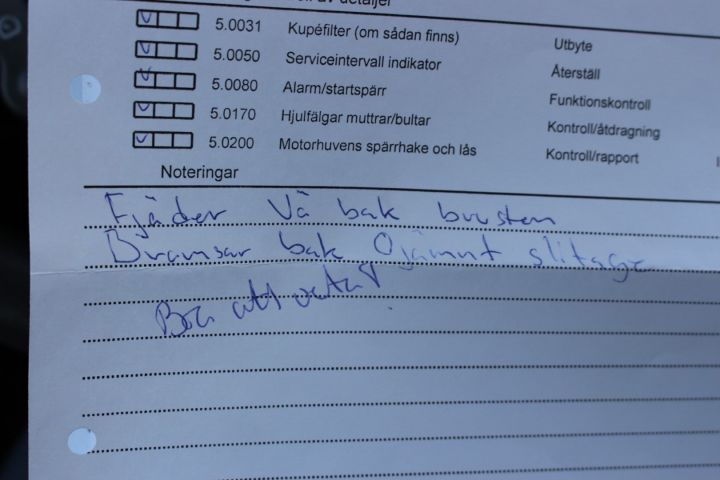 av detaljer
5.0031 Kupéfilter (om sådan finns) Utbyte
5.0050 Serviceintervall indikator Återställ
5.0080 Alarm/startspärr Funktionskontroll
5.0170 Hjulfälgar muttrar/bultar Kontroll/åtdragning
5.0200 Motorhuvens spärrhake och lås Kontroll/rapport
Noteringar
Fjäder Vä bak brusten
Bromsar bak Ojämnt slitage
Bra att veta!